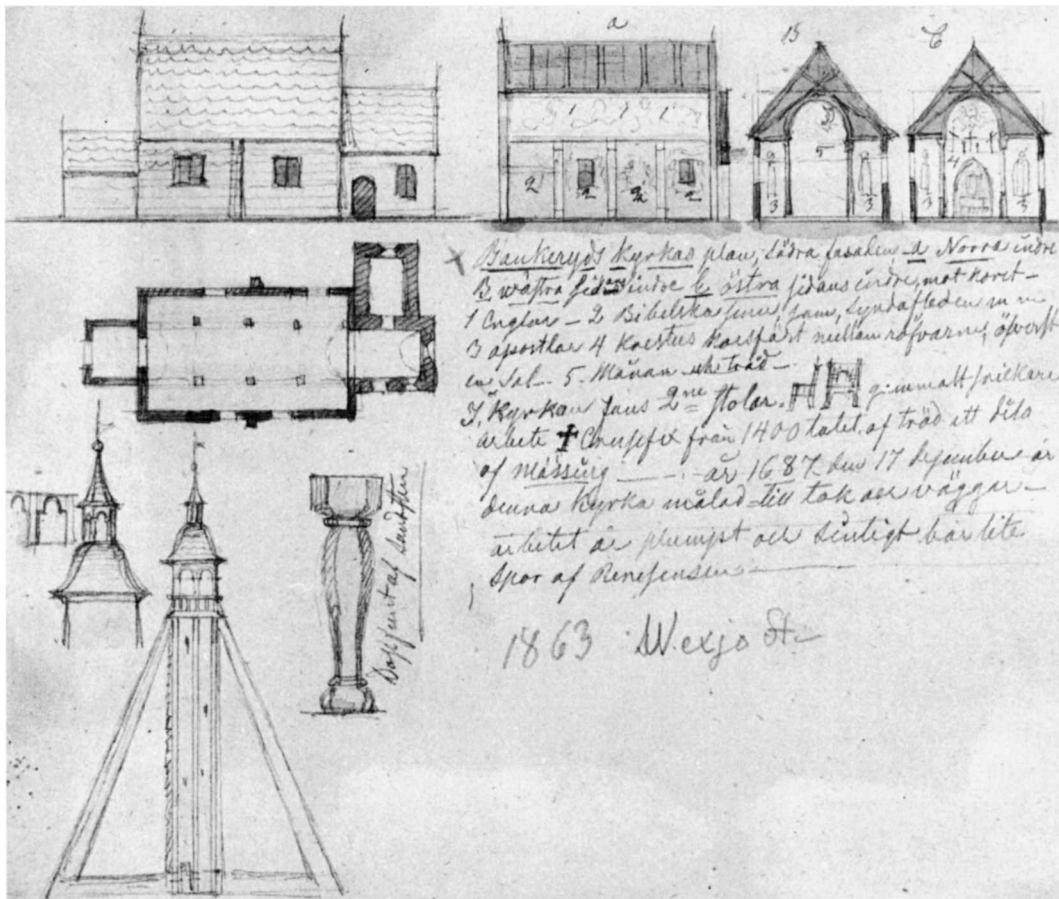 a
B
C
1 2 1 1
2 2 2 2
3 5 3
3 4 3
Bankeryds Kyrkas plan, Södra fasaden a Norra indre
B wästra sidans indre C östra sidans indre, mot koret -
1 Englar - 2 Bibelska som Syndafloden m m
3 apostlar 4 Korsfäst mellan röfvarne, öfverst
en Sol - 5. Månan träd -
I Kyrkan fans 2ne stolar. gammalt snickare
arbete Crusifix från 1400 talet af träd ett dito
af mässing — år 1687 den 17 desember är
denna Kyrka målad till tak och väggar -
arbetet är plumpt och bär lite
spor af Renesensen
Dopfunt af Sandsten
1863 Wexjo St